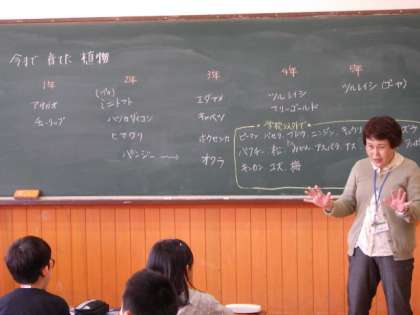 今まで 育てた 植物
1年 2年 3年 4年 5年
アサガオ ミニトマト エダマメ ツルレイシ ツルレイシ (ゴーヤ)
チューリップ ハツカダイコン キャベツ マリーゴールド
ヒマワリ ホウセンカ
パンジー → オクラ
学校以外で
ピーマン パセリ ニンジン キュウリ
パクチー アスパラ ナス
キンカン ユズ 梅